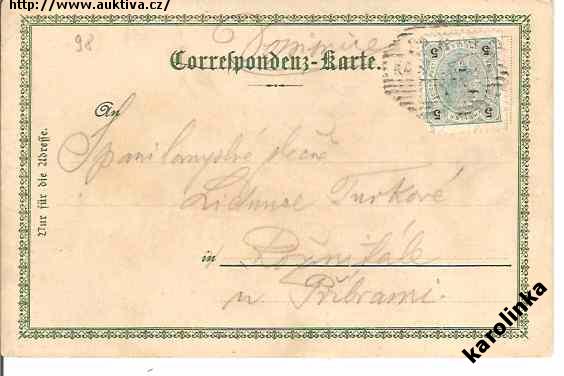 http://www.auktiva.cz/
98
Correspondenz-Karte.
An
Nur für die Adresse.
slečně
Lidunce Turkové
in
u Příbrami.
5 5
5 5
karolinka